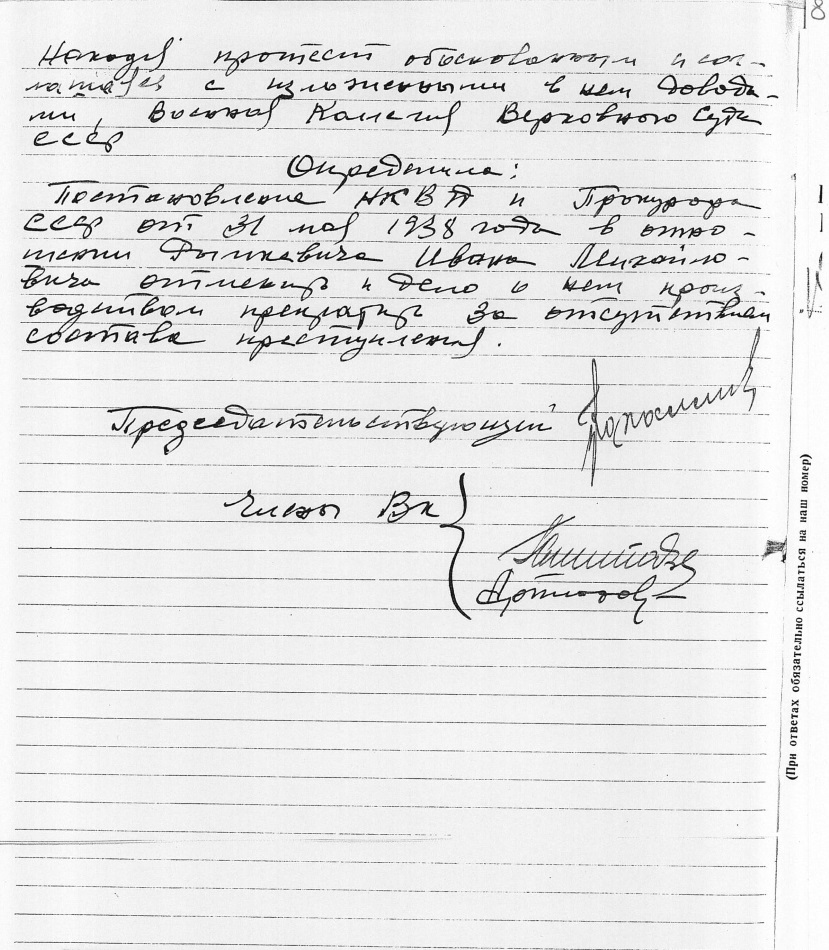 Находя протест обоснованным и сог-
лашаясь с изложенными в нем довода-
ми, Военная Коллегия Верховного Суда
СССР
Определила:
Постановление НКВД и Прокурора
СССР от 31 мая 1938 года в отно-
шении Дылкевича Ивана Михайло-
вича отменить и дело о нем произ-
водством прекратить за отсутствием
состава преступления.
Председательствующий
Члены ВК
(При ответах обязательно ссылаться на наш номер)
8